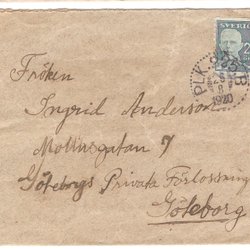 SVERIGE
PLK 293 B
1920
Fröken
Ingrid Anderson
Molinsgatan 7
Göteborgs Privata Förlossning
Göteborg